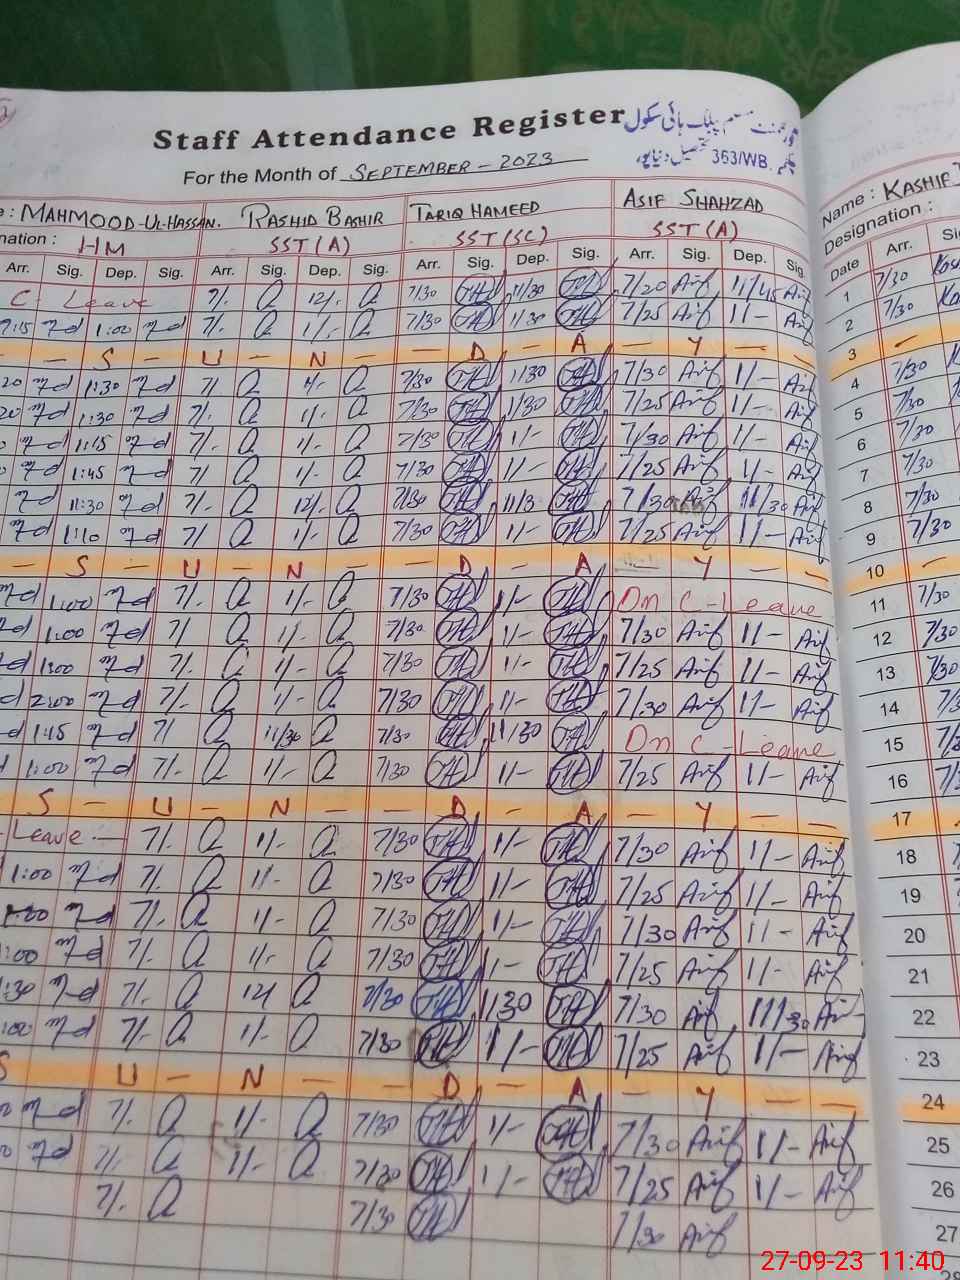 Staff Attendance Register
گورنمنٹ مسلم پبلک ہائی سکول
363/WB. تحصیل دنیاپور
For the Month of SEPTEMBER - 2023
MAHMOOD-UL-HASSAN. RASHID BASHIR TARIQ HAMEED ASIF SHAHZAD Name : KASHIF
nation : HM SST (A) SST (SC) SST (A) Designation :
Arr. Sig. Dep. Sig. Arr. Sig. Dep. Sig. Arr. Sig. Dep. Sig. Arr. Sig. Dep. Sig. Date Arr.
C- Leave 7/. 12/. 7/30 TH 11/30 TH 7/20 Asif 11/45 Asif 1 7/30
1:00 7/. 1/- 7/30 TH 1/30 TH 7/25 Asif 1/- Asif 2 7/30
S - U - N - D - A - Y - - 3 -
20 1:30 7/ 1/- 7/30 TH 1/30 TH 7/30 Asif 1/- Asif 4 7/30
20 1:30 7/. 1/- 7/30 TH 1/30 TH 7/25 Asif 1/- Asif 5 7/30
1:15 7/. 1/- 7/30 TH 1/- TH 7/30 Asif 1/- Asif 6 7/30
1:45 7/ 1/- 7/30 TH 1/- TH 7/25 Asif 1/- Asif 7 7/30
11:30 7/. 12/. 7/30 TH 11/3 TH 7/30 Asif 11/30 Asif 8 7/30
1:10 7/ 1/- 7/30 TH 1/- TH 7/25 Asif 1/- Asif 9 7/30
- S - U - N - D - A - Y - - 10 -
1:00 7/. 1/- 7/30 TH 1/- TH On C-Leave 11 7/30
1:00 7/ 1/- 7/30 TH 1/- TH 7/30 Asif 1/- Asif 12 7/30
1:00 7/. 1/- 7/30 TH 1/- TH 7/25 Asif 1/- Asif 13 7/30
2:00 7/. 1/- 7/30 TH 1/- TH 7/30 Asif 1/- Asif 14
1:15 7/ 11/30 7/30 TH 11/30 TH On C-Leave 15
1:00 7/. 1/- 7/30 TH 1/- TH 7/25 Asif 1/- Asif 16
S - U - N - D - A - Y - - 17
Leave 7/. 1/- 7/30 TH 1/- TH 7/30 Asif 1/- Asif 18
1:00 7/. 1/- 7/30 TH 1/- TH 7/25 Asif 1/- Asif 19
7/. 1/- 7/30 TH 1/- TH 7/30 Asif 1/- Asif 20
:00 7/. 1/- 7/30 TH 1/- TH 7/25 Asif 1/- Asif 21
:30 7/. 12/ 7/30 TH 1130 TH 7/30 Asif 11/30 Asif 22
:00 7/. 1/- 7/30 TH 1/- TH 7/25 Asif 1/- Asif 23
S U - N - D - A - Y - - 24
7/. 1/- 7/30 TH 1/- TH 7/30 Asif 1/- Asif 25
7/. 1/- 7/30 TH 1/- TH 7/25 Asif 1/- Asif 26
7/. 7/30 TH 7/30 Asif 27
27-09-23 11:40